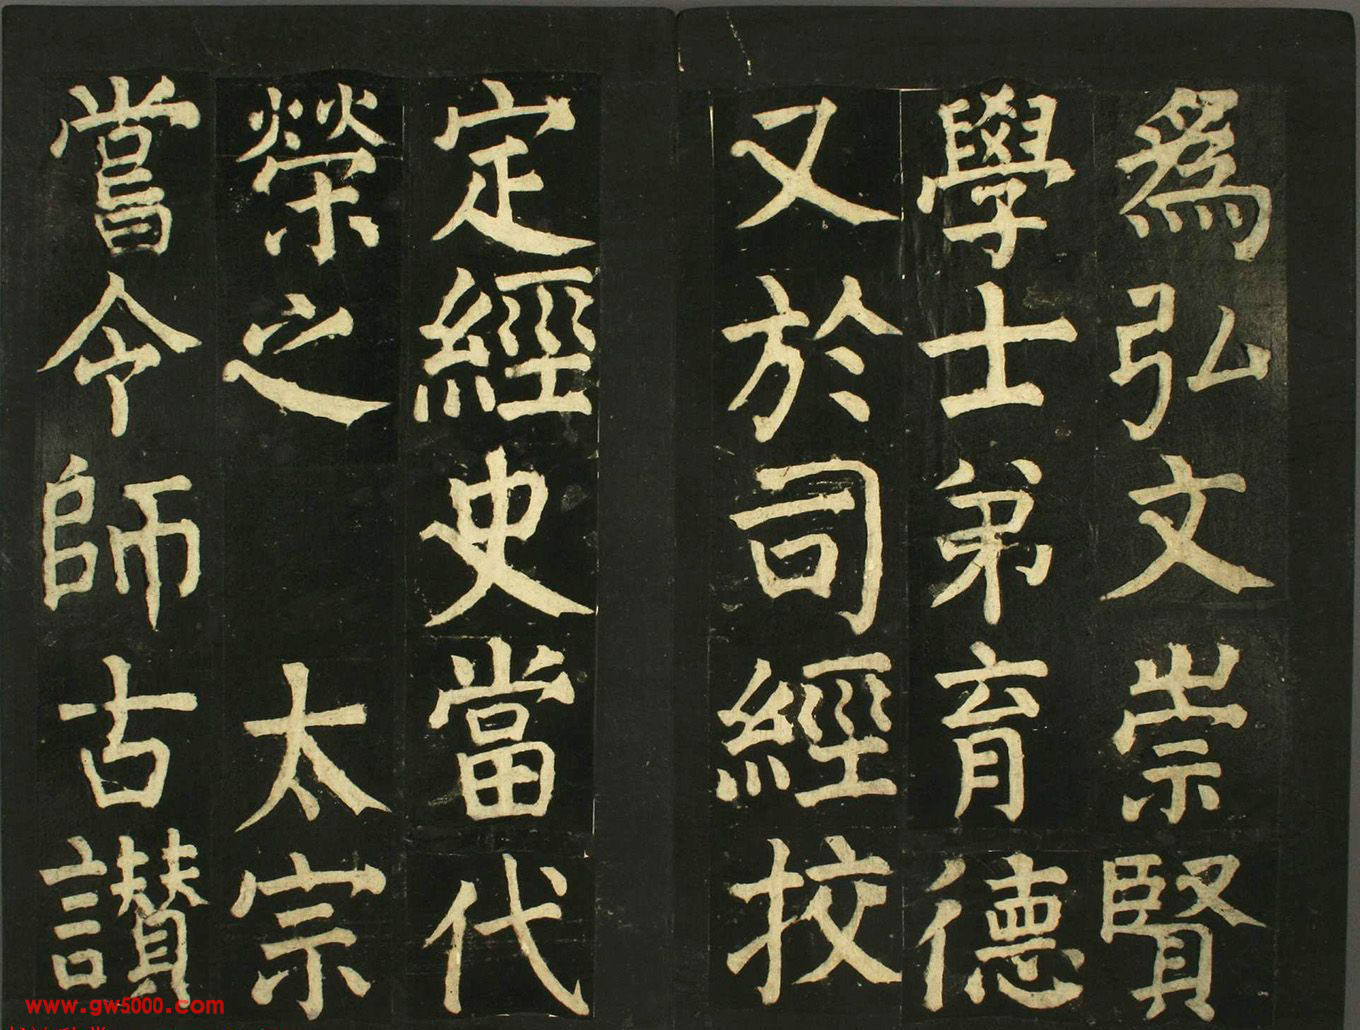 為弘文崇賢
學士弟育德
又於司經校
定經史當代
榮之 太宗
嘗令師古讃
www.gw5000.com